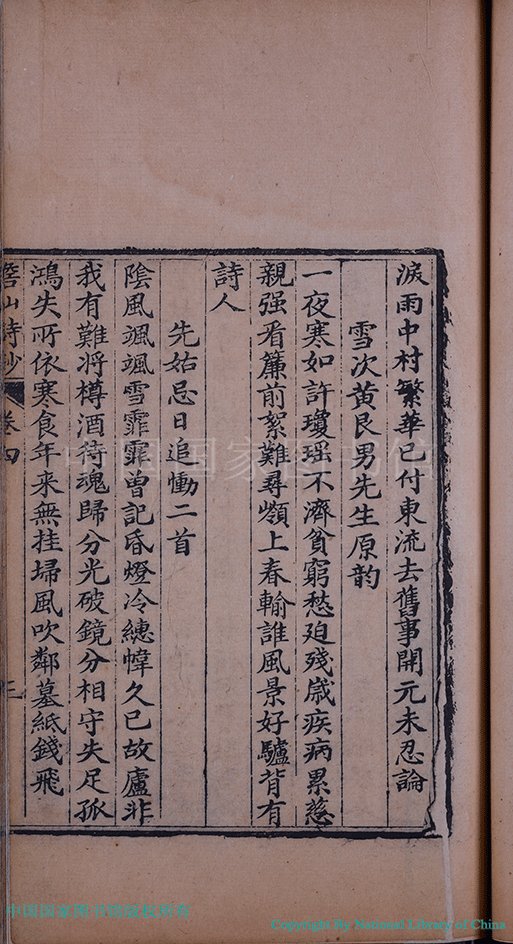 淚雨中村繁華已付東流去舊事開元未忍論
雪次黄艮男先生原韵
一夜寒如許瓊瑶不濟貧窮愁迫殘歲疾病累慈
親强看簾前絮難尋嶺上春輸誰風景好驢背有
詩人
先姑忌日追慟二首
陰風颯颯雪霏霏曾記昏燈冷繐幃久已故廬非
我有難將樽酒待魂歸分光破鏡分相守失足孤
鴻失所依寒食年來無挂埽風吹鄰墓紙錢飛
詩鈔 卷四
中国国家图书馆
中国国家图书馆版权所有
Copyright By National Library of China